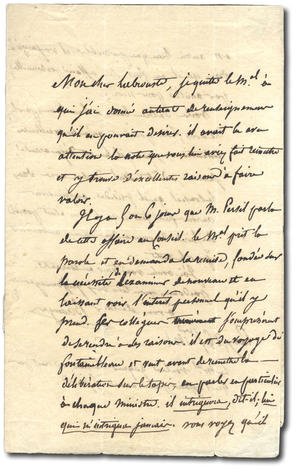 Mon cher Labrouste, je quitte le M.al à
qui j'ai donné autant de renseignemens
qu'il en pouvait désirer. il avait lu avec
attention la note que vous lui avez fait remettre
et y trouve d'excellentes raisons à faire
valoir.
Il y a 5 ou 6 jours que M. Persil parla
de cette affaire au Conseil. le M.al prit la
parole et en demanda la remise, fondée sur
la nécessité d'examiner de nouveau et en
laissant voir l'intérêt personnel qu'il y
prend. Ses collègues s'empressèrent
de se rendre à ses raisons. il est du voyage de
Fontainebleau et veut, avant de remettre la
délibération sur le tapis, en parler en particulier
à chaque ministre. il intriguera, dit-il, lui
qui n'intrigue jamais. vous voyez qu'il